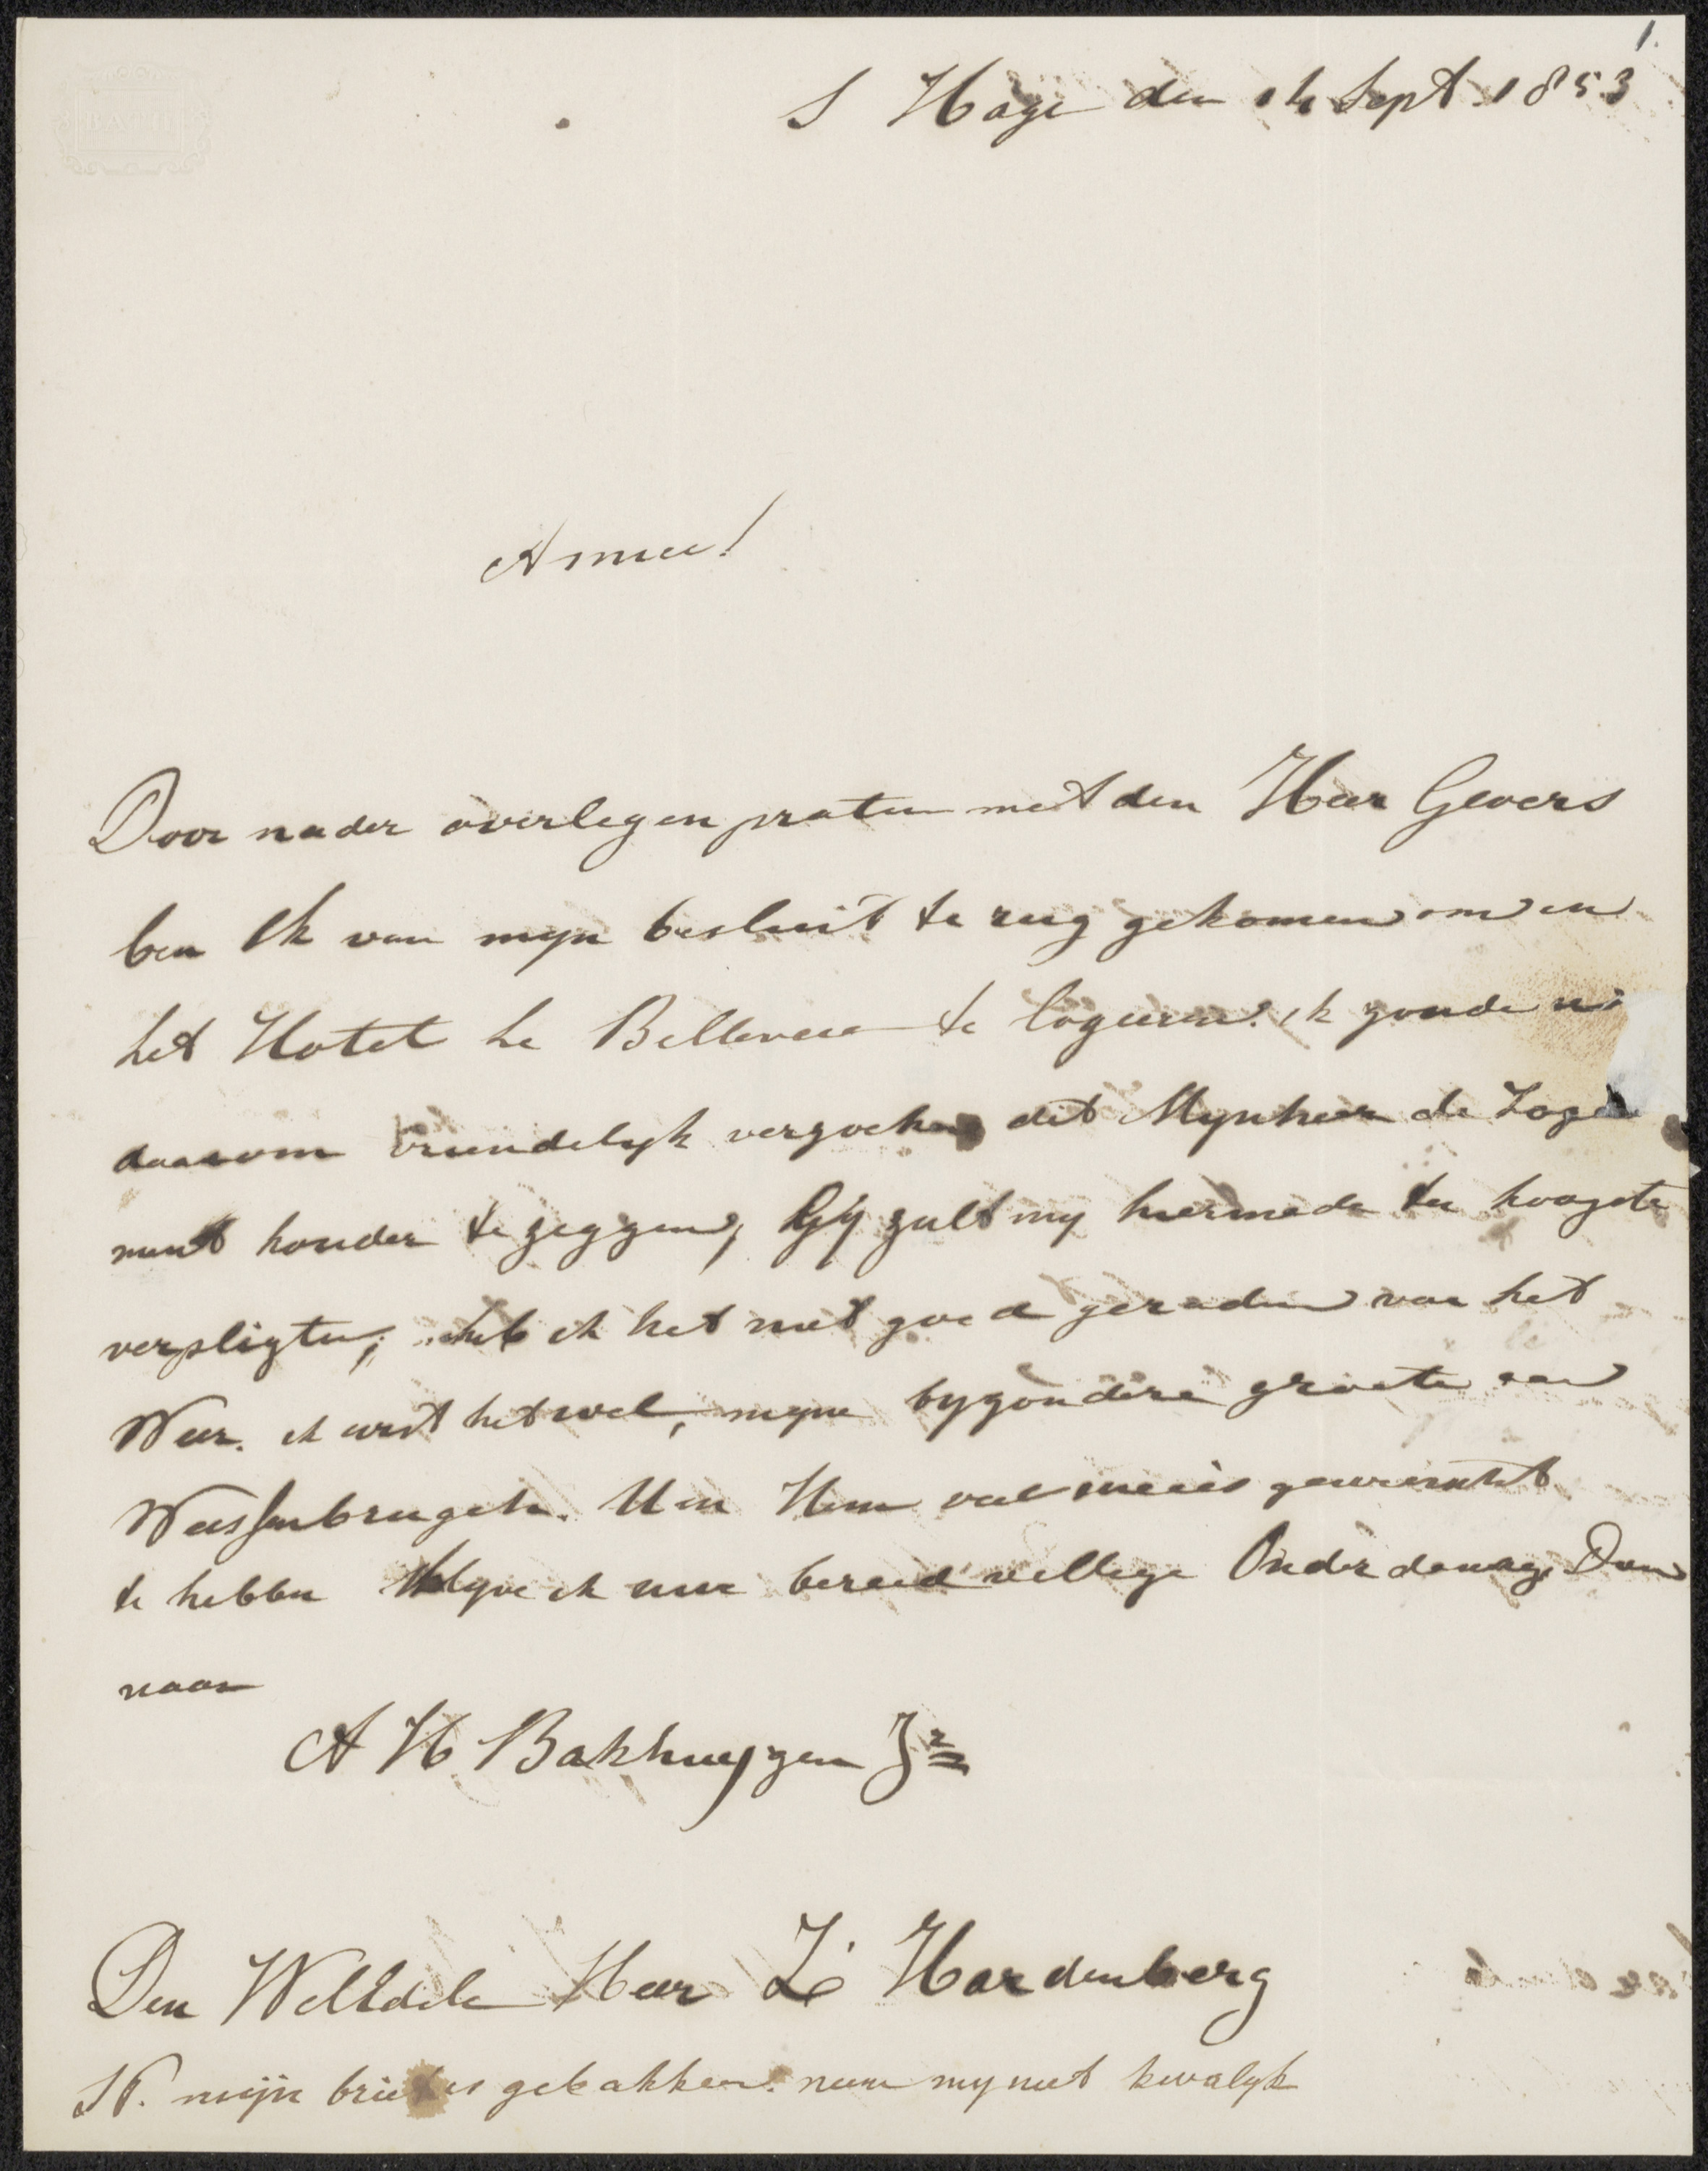 1.
S Hage den 14 Sept. 1853
Amice!
Door nader overleg en praten met den Heer Gevers
ben Ik van mijn besluit te rug gekomen om in
het Hotel Bellevue te logeren. ik zoude
daarom vriendelyk verzoeken dit Mynheer de
te zeggen, Gij zult my hiermede ten hoogste
verpligten; heb ik het niet goed geraden van het
Weer. ik wist het wel, myne byzondere groete aan
Weissenbrugch. U en Hem veel succes gewenscht
te hebben blyve ik uwe bereidwillige Onderdanige Die
naar
A H Bakhuyzen Jr
Den WelEdele Heer L. Hardenberg
mijn brief is gebakken. neem my niet kwalyk